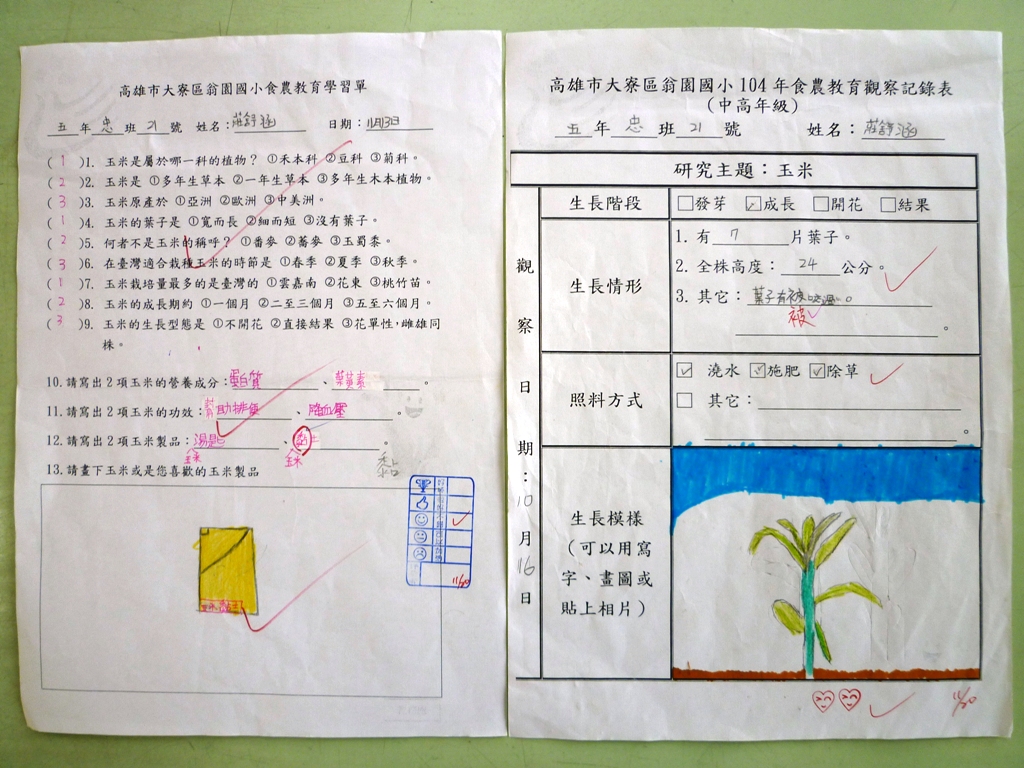 高雄市大寮區翁園國小食農教育學習單
五 年 忠 班 21 號 姓名:莊 涵 日期:11月3日
( 1 )1. 玉米是屬於哪一科的植物? ①禾本科 ②豆科 ③菊科。
( 2 )2. 玉米是 ①多年生草本 ②一年生草本 ③多年生木本植物。
( 3 )3. 玉米原產於 ①亞洲 ②歐洲 ③中美洲。
( 1 )4. 玉米的葉子是 ①寬而長 ②細而短 ③沒有葉子。
( 2 )5. 何者不是玉米的稱呼? ①番麥 ②蕎麥 ③玉蜀黍。
( 3 )6. 在臺灣適合栽種玉米的時節是 ①春季 ②夏季 ③秋季。
( 1 )7. 玉米栽培量最多的是臺灣的 ①雲嘉南 ②花東 ③桃竹苗。
( 2 )8. 玉米的成長期約 ①一個月 ②二至三個月 ③五至六個月。
( 3 )9. 玉米的生長型態是 ①不開花 ②直接結果 ③花單性,雌雄同
株。
10.請寫出2項玉米的營養成分:蛋白質、葉黃素。
11.請寫出2項玉米的功效:幫助排便、降血壓。
12.請寫出2項玉米製品:湯匙、黏土。
玉米 玉米 黏
13.請畫下玉米或是您喜歡的玉米製品
玉米黏土
11/20
高雄市大寮區翁園國小 104 年食農教育觀察記錄表
(中高年級)
五 年 忠 班 21 號 姓名:莊 涵
研究主題:玉米
觀察日期:10月16日
生長階段
□發芽 ☑成長 □開花 □結果
生長情形
1. 有 7 片葉子。
2. 全株高度: 24 公分。
3. 其它:葉子有被咬過。
被
。
照料方式
☑ 澆水 ☑施肥 ☑除草
□ 其它:
。
生長模樣
(可以用寫
字、畫圖或
貼上相片)
11/20